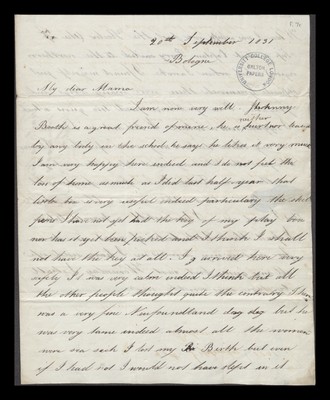 20th September 1831
Bologne
UNIVERSITY COLLEGE LONDON
GALTON PAPERS
My dear Mama
I am now very well. Johnny
Booth is a great friend of mine, he is neither
by any body in the school he says he likes it very much
I am very happy here indeed and I do not feel the
loss of home as much as I did last half-year that
book be a very usefull indeed particulary the
I have not yet had the key of my play box
nor has it yet been opened and I think I shall
not have the key at all. I arrived here very
safely It was very calm indeed I think but all
the other people thought quite the contrary There
was a very fine Newfoundland dog but he
was very lame indeed almost all the women
were sea sick I lost my Birth but even
if I had not I would not have slept in it